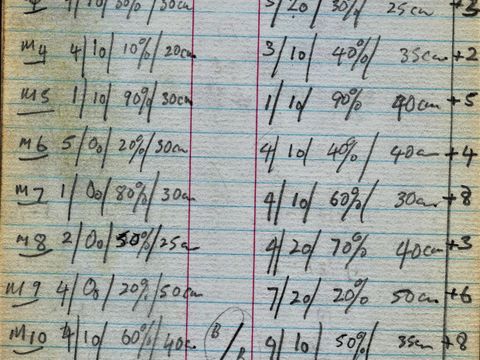 M4 4/10/10%/20cm 3/10/40%/35cm+2
M5 1/10/90%/30cm 1/10/90% 40cm+5
M6 5/0/20%/30cm 4/10/40%/40cm+4
M7 1/0/80%/30cm 4/10/60%/30cm+8
M8 2/0/50%/25cm 4/20/70%/40cm+3
M9 4/0/20%/50cm 7/20/20%/50cm+6
M10 4/10/60%/40cm B/ 9/10/50%/35cm+8